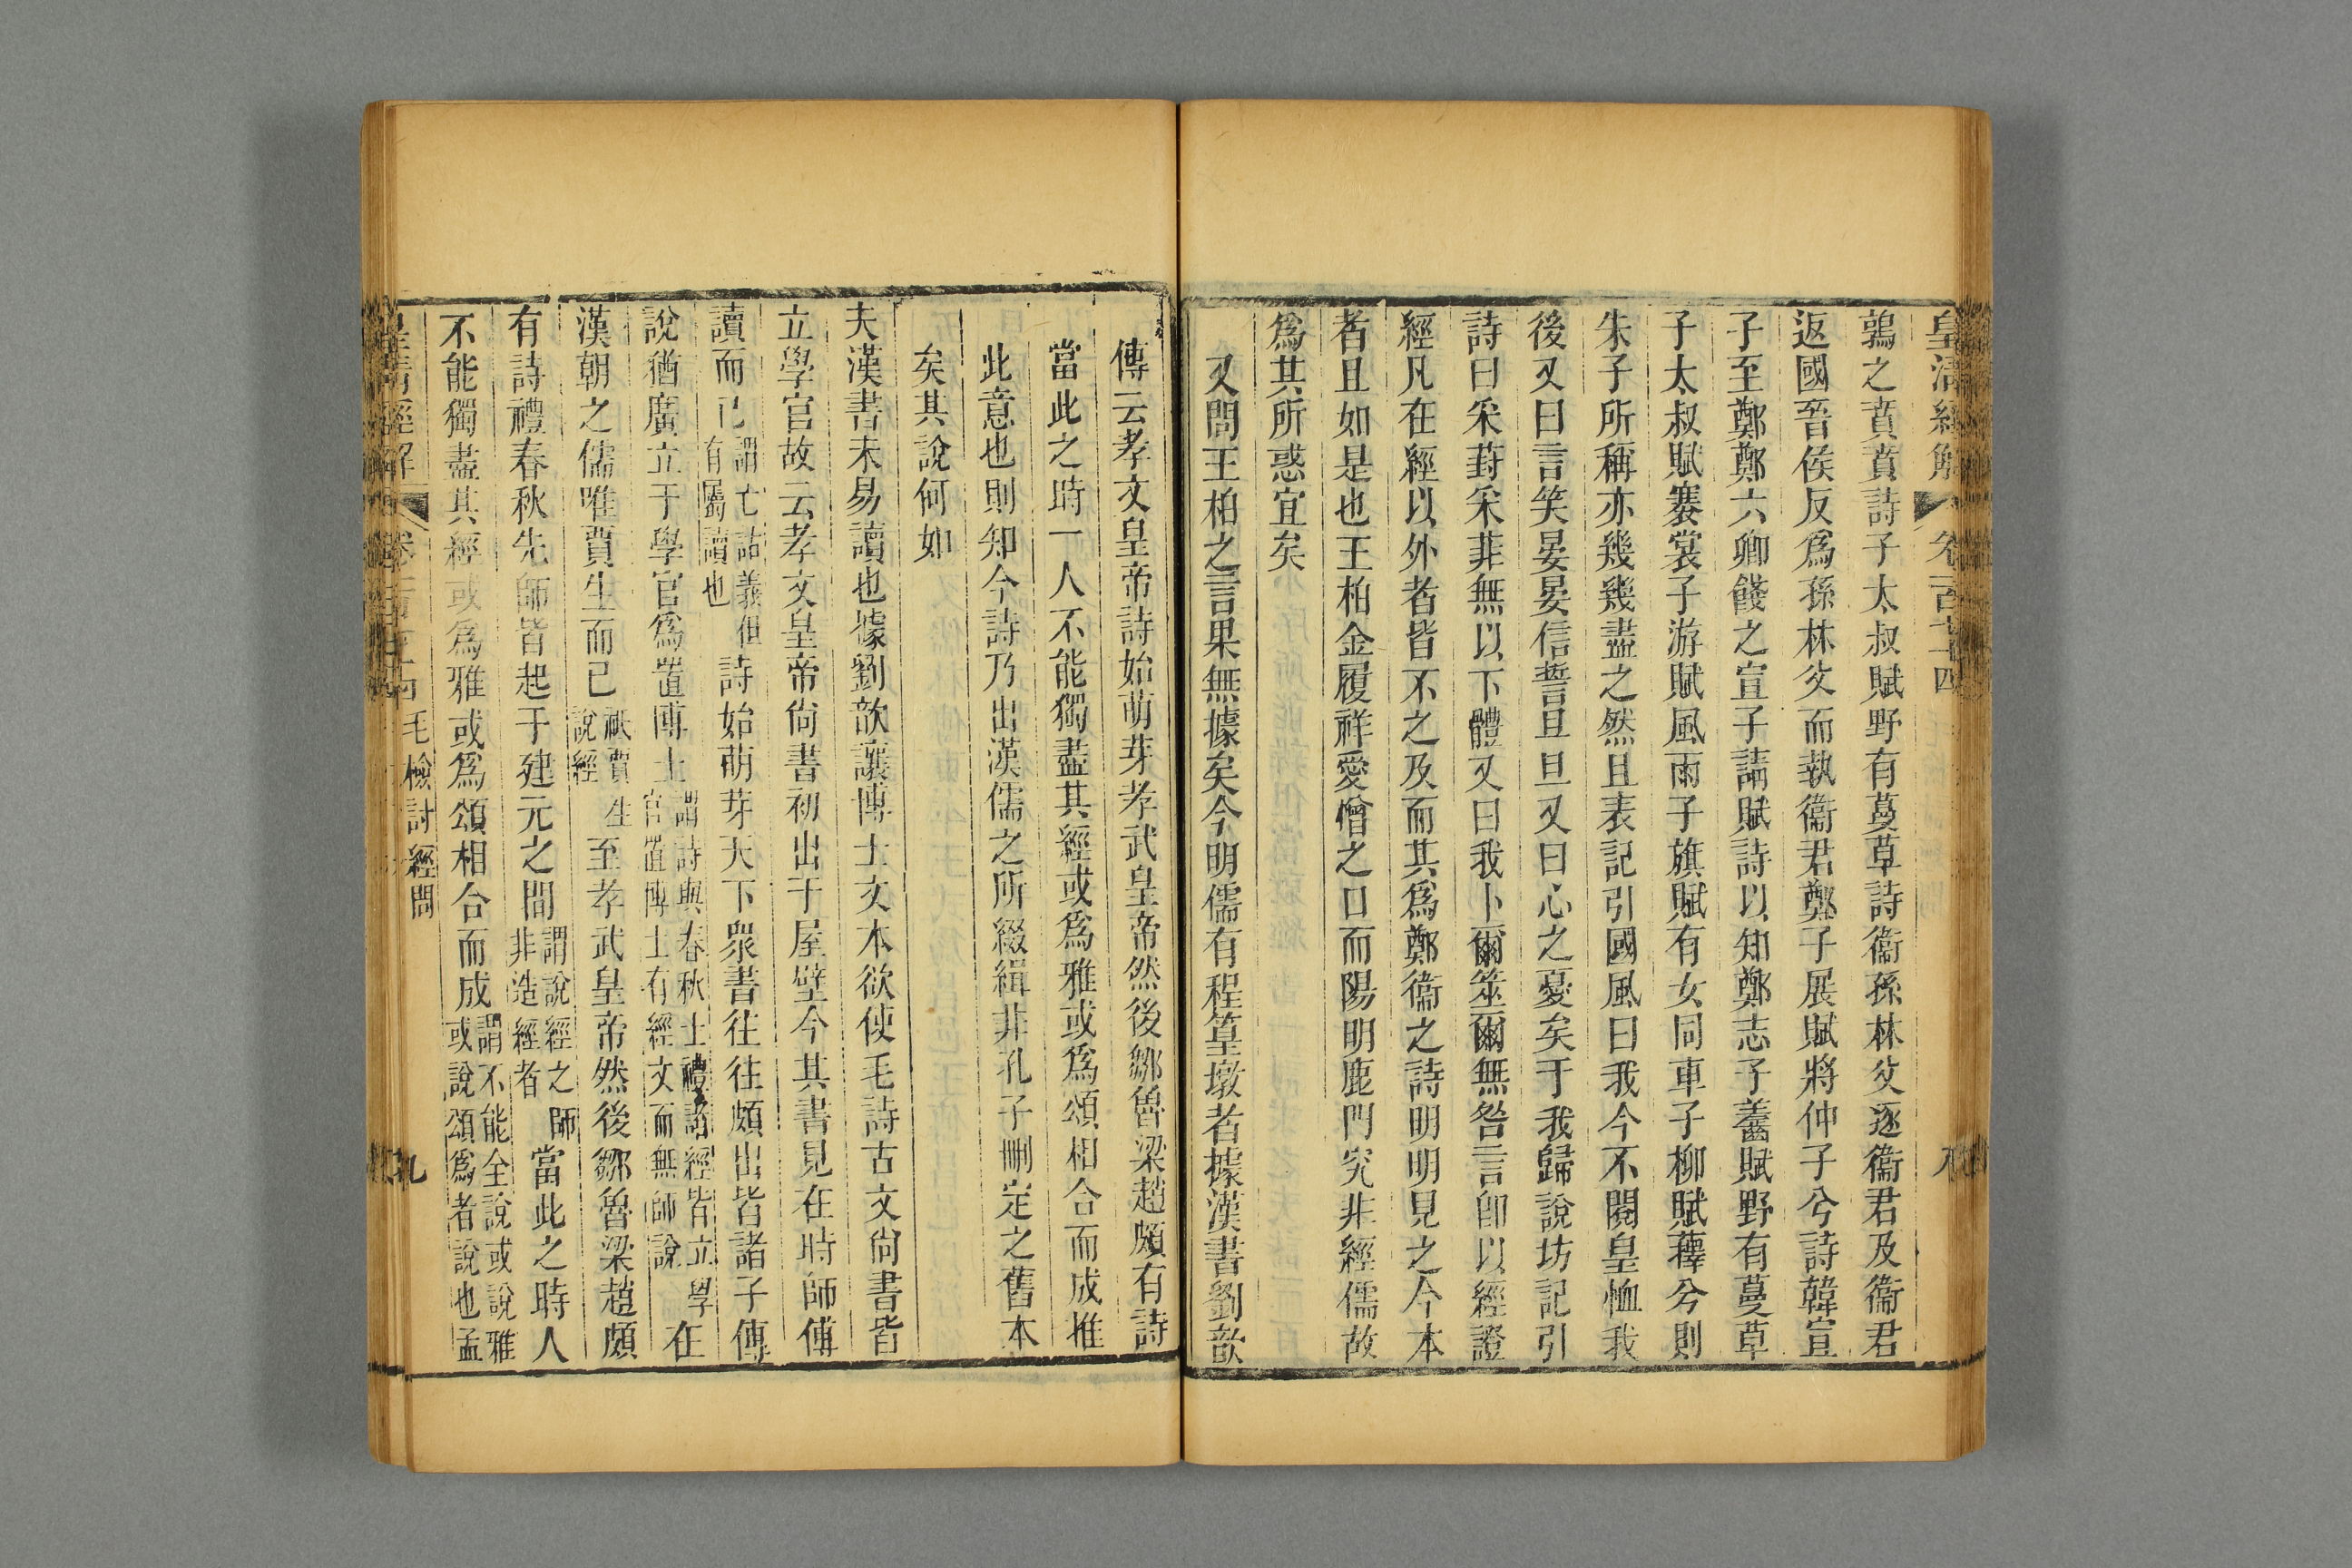 皇清經解 卷百七十四 八
鶉之賁賁詩子太叔賦野有蔓草詩衞孫林父逐衞君及衞君
返國晉侯反爲孫林父而執衞君鄭子展賦將仲子兮詩韓宣
子至鄭鄭六卿餞之宣子請賦詩以知鄭志子齹賦野有蔓草
子太叔賦褰裳子游賦風雨子旗賦有女同車子柳賦蘀兮則
朱子所稱亦幾幾盡之然且表記引國風曰我今不閱皇恤我
後又曰言笑晏晏信誓旦旦又曰心之憂矣于我歸說坊記引
詩曰采葑采菲無以下體又曰我卜爾筮爾無咎言卽以經證
經凡在經以外者皆不之及而其爲鄭衞之詩明明見之今本
者且如是也王柏金履祥愛憎之口而陽明鹿門究非經儒故
爲其所惑宜矣
又問王柏之言果無據矣今明儒有程篁墩者據漢書劉歆
傳云孝文皇帝詩始萌芽孝武皇帝然後鄒魯梁趙頗有詩
當此之時一人不能獨盡其經或爲雅或爲頌相合而成推
此意也則知今詩乃出漢儒之所綴緝非孔子刪定之舊本
矣其說何如
夫漢書未易讀也據劉歆讓博士文本欲使毛詩古文尙書皆
立學官故云孝文皇帝尙書初出于屋壁今其書見在時師傅
讀而已謂亡詁義但有屬讀也詩始萌芽天下衆書往往頗出皆諸子傳
說猶廣立于學官爲置博士謂詩與春秋士禮諸經皆立學官置博士有經文而無師說在
漢朝之儒唯賈生而已祇賈生說經至孝武皇帝然後鄒魯梁趙頗
有詩禮春秋先師皆起于建元之間謂說經之師非造經者當此之時人
不能獨盡其經或爲雅或爲頌相合而成謂不能全說或說雅或說頌爲者說也孟
皇清經解 卷百七十四 毛檢討經問 九